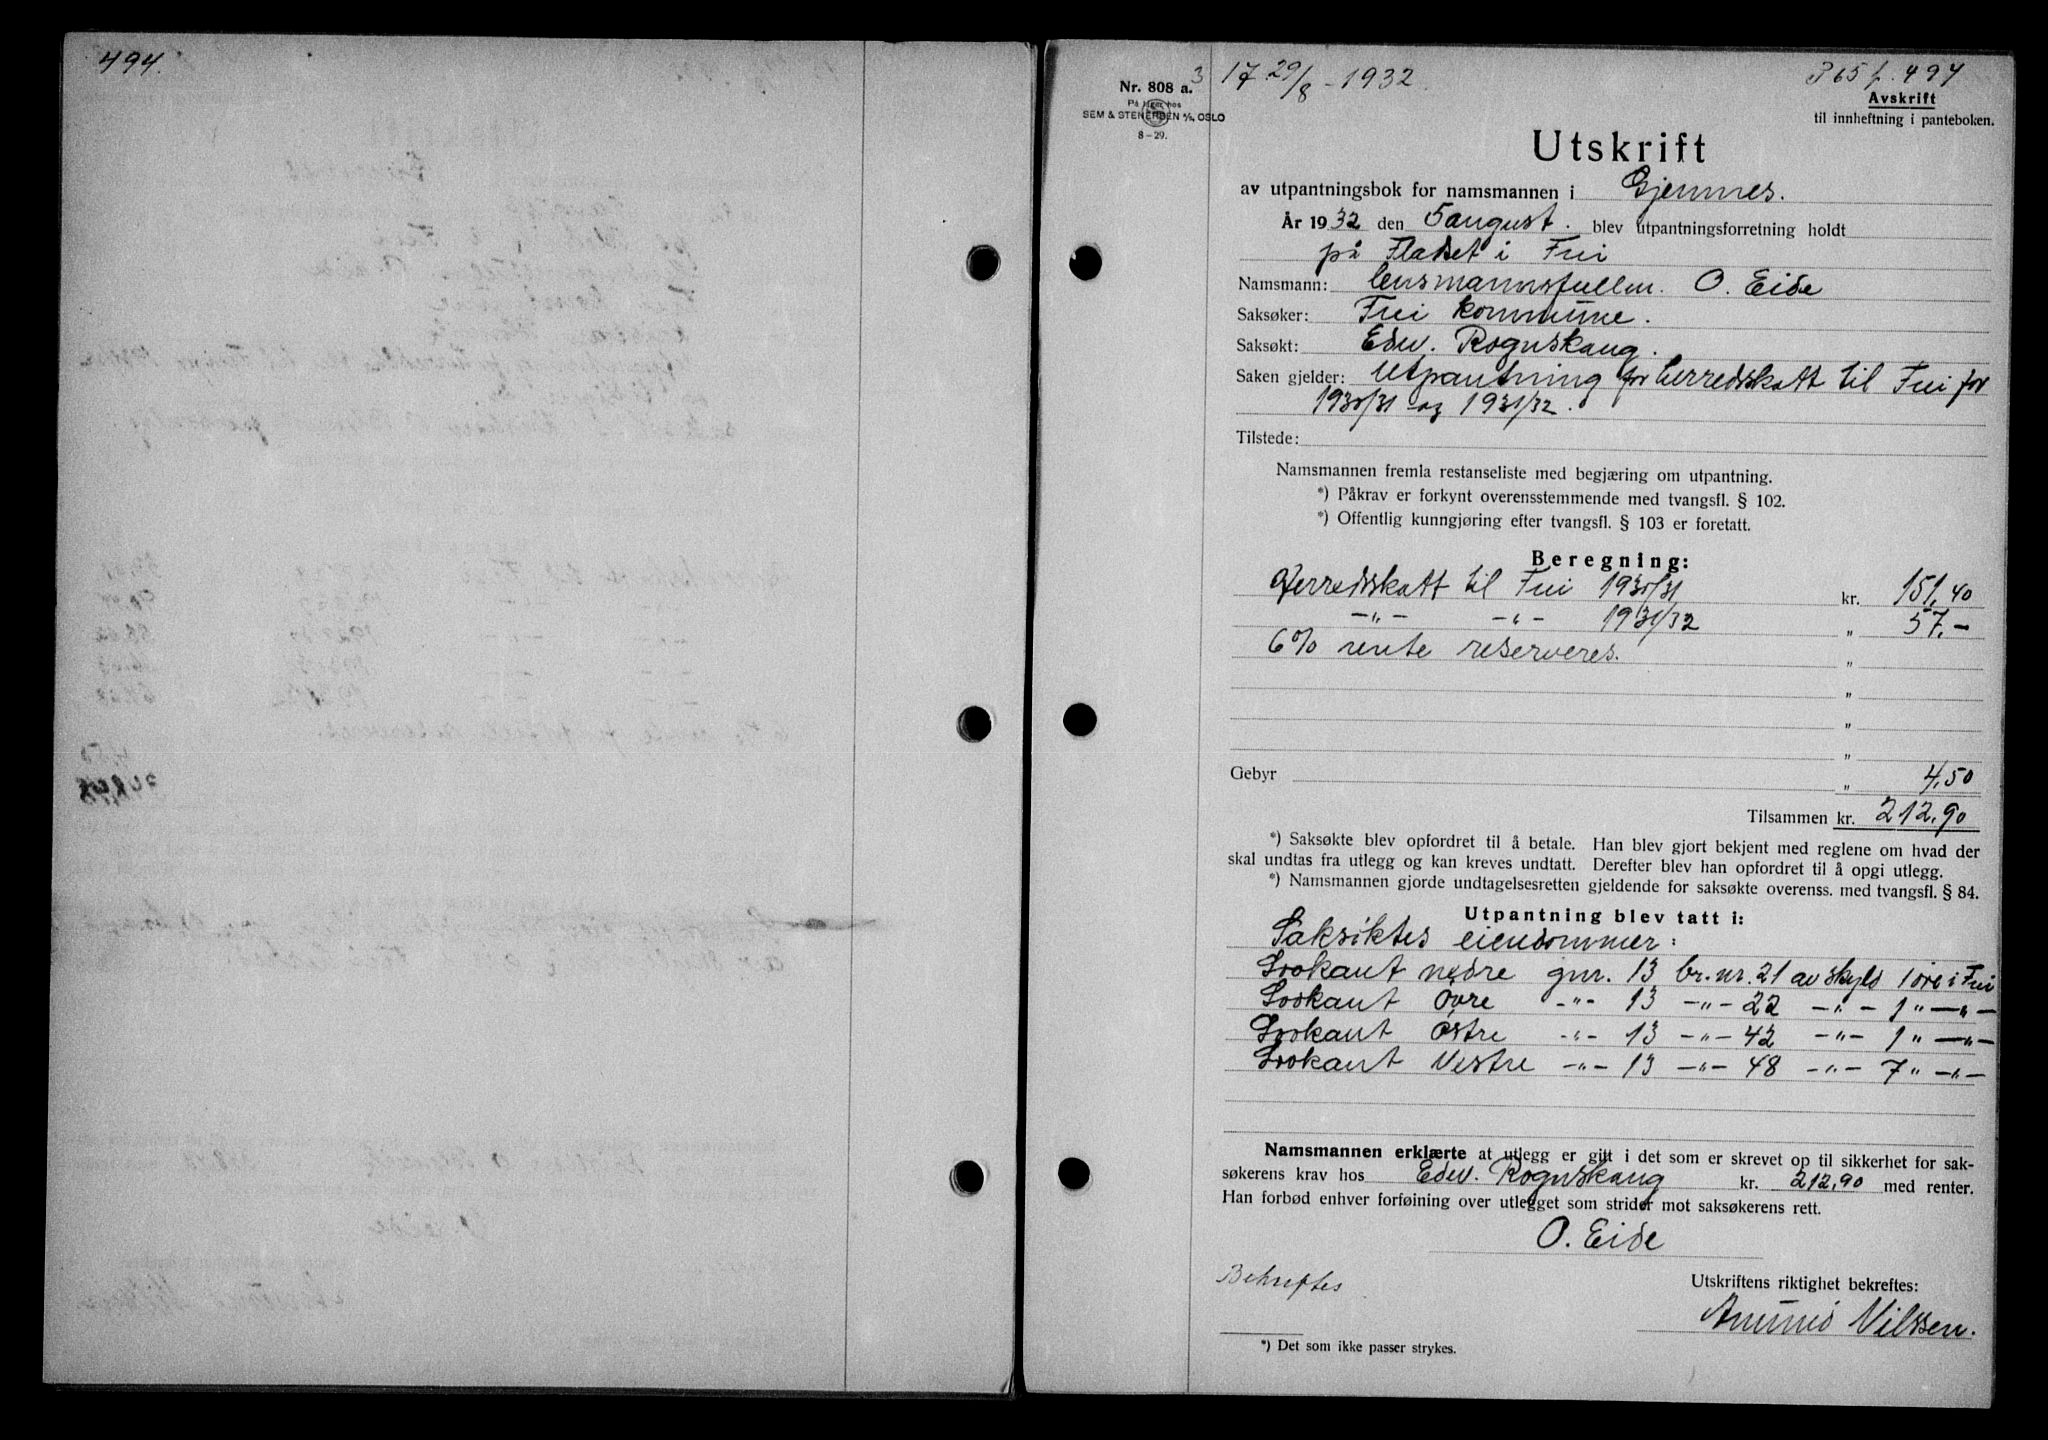 494.
Nr. 808 a.
På lager hos
SEM & STENERSEN A/S, OSLO
8–29.
3
17 29/8 - 1932
P 65 f. 494
Avskrift
til innheftning i panteboken.
Utskrift
av utpantningsbok for namsmannen i Gjemnes.
År 1932 den 5 august. blev utpantningsforretning holdt
på Fladset i Frei
Namsmann: lensmannsfullm. O. Eide
Saksøker: Frei kommune.
Saksøkt: Edw. Rognskaug.
Saken gjelder: Utpantning for herredskatt til Frei for
1930/31 og 1931/32.
Tilstede:
Namsmannen fremla restanseliste med begjæring om utpantning.
*) Påkrav er forkynt overensstemmende med tvangsfl. § 102.
*) Offentlig kunngjøring efter tvangsfl. § 103 er foretatt.
Beregning:
Herredsskatt til Frei 1930/31 kr. 151,40
-„- -„- 1931/32 „ 57.-
6% rente reserveres. „
„
„
„
Gebyr „ 4,50
Tilsammen kr. 212,90
*) Saksøkte blev opfordret til å betale. Han blev gjort bekjent med reglene om hvad der
skal undtas fra utlegg og kan kreves undtatt. Derefter blev han opfordret til å opgi utlegg.
*) Namsmannen gjorde undtagelsesretten gjeldende for saksøkte overenss. med tvangsfl. § 84.
Utpantning blev tatt i:
Saksøktes eiendommer:
nedre gnr. 13 br.nr. 21 av skyld 1 øre i Frei
Øvre -„- 13 -„- 22 -„- 1 „ -„-
Østre -„- 13 -„- 42 -„- 1 „ -„-
Vestre -„- 13 -„- 48 -„- 7 „ -„-
Namsmannen erklærte at utlegg er gitt i det som er skrevet op til sikkerhet for sak-
søkerens krav hos Edw. Rognskaug kr. 212,90 med renter.
Han forbød enhver forføining over utlegget som strider mot saksøkerens rett.
O. Eide
Bekreftes
Utskriftens riktighet bekreftes:
Nilssen.
*) Det som ikke passer strykes.